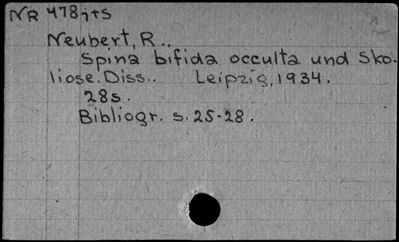 NR 478jts
Neubert, R..
Spina bifida occulta und Sko-
liose. Diss.. Leipzig, 1934.
28s.
Bibliogr. s. 25-28.